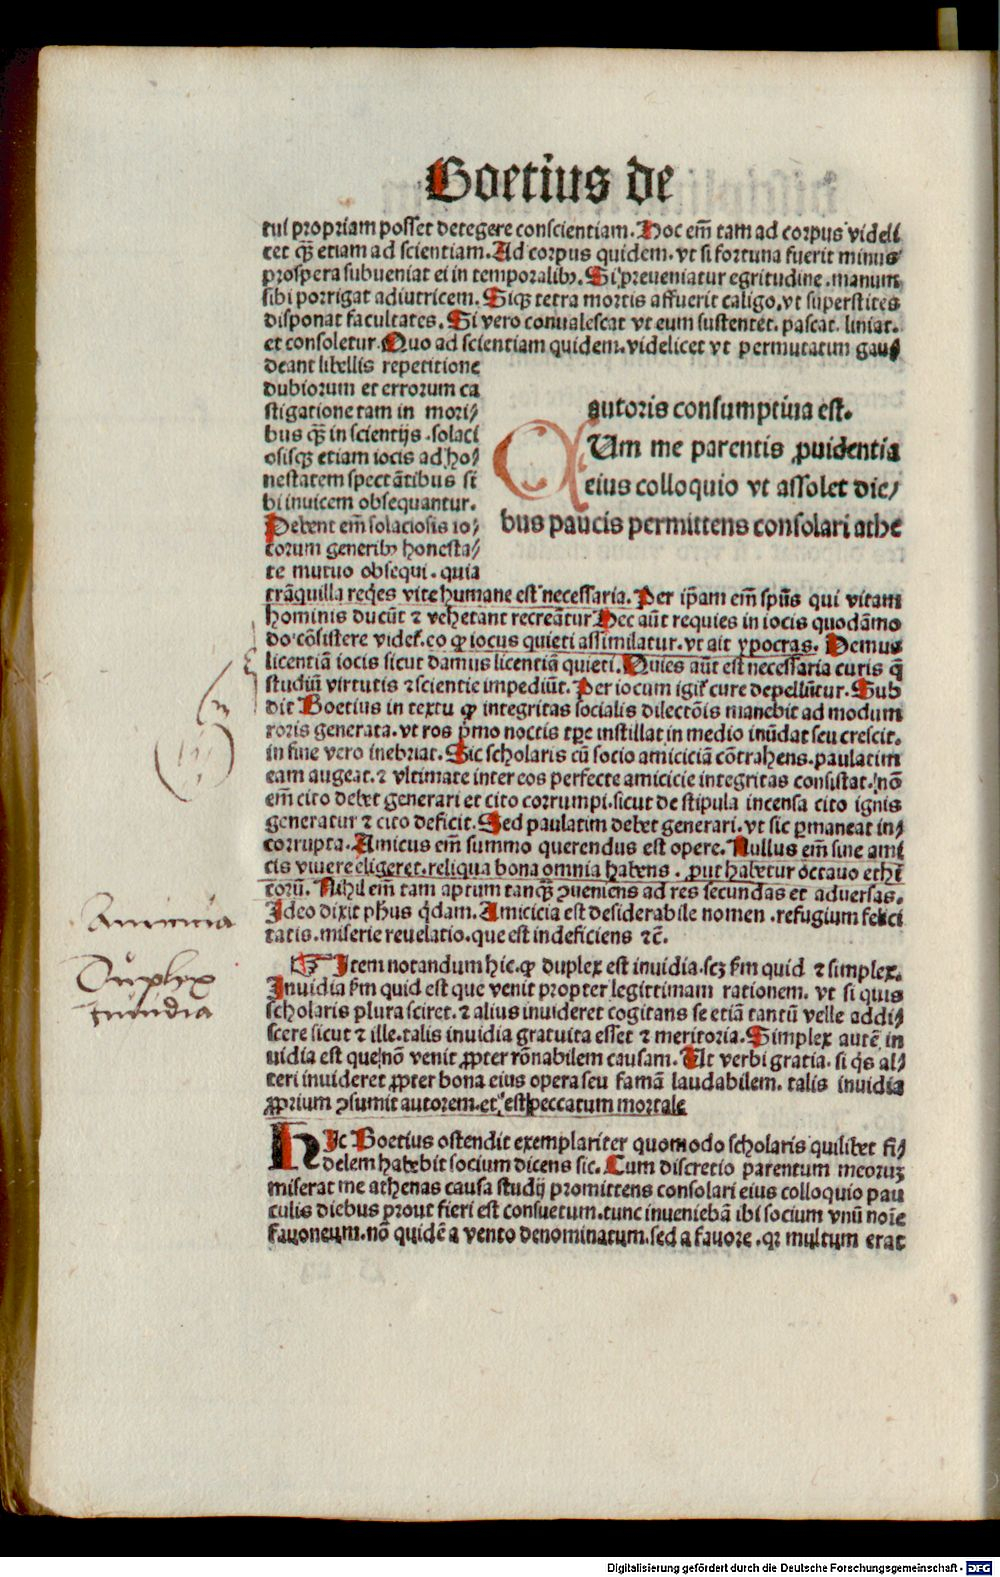 Boetius de
tui propriam posset detegere conscientiam. Hoc em̄ tam ad corpus videli
cet qȝ̄ etiam ad scientiam. Ad corpus quidem. vt si fortuna fuerit minus
prospera subueniat ei in temporalibꝰ. Si preueniatur egritudine. manum
sibi porrigat adiutricem. Siqȝ tetra mortis affuerit caligo. vt superstites
disponat facultates. Si vero conualescat vt eum sustentet. pascat. liniat.
et consoletur. Quo ad scientiam quidem. videlicet vt permutatim gau⸗
deant libellis repetitione
dubiorum et errorum ca
stigatione tam in mori⸗
bus qȝ̄ in scientijs. solaci
osisqȝ etiam iocis ad ho⸗
nestatem spectātibus si
bi inuicem obsequantur.
Debent em̄ solaciosis io⸗
corum generibꝰ honesta⸗
te mutuo obsequi. quia
autoris consumptiua est.
CUm me parentis ꝓuidentia
eius colloquio vt assolet die⸗
bus paucis permittens consolari athe
trāquilla reqͥes vite humane est necessaria. Per ip̄am em̄ spūs qui vitam
hominis ducūt ⁊ vehetant recreātur Nec aūt requies in iocis quodāmo
do cōsistere videt̄. eo ꝙ iocus quieti assimilatur. vt ait ypocras. Demus
licentiā iocis sicut damus licentiā quieti. Quies aūt est necessaria curis q̄
studiū virtutis ⁊ scientie impediūt. Per iocum igit̄ cure depellūtur. Sub
dit Boetius in textu ꝙ integritas socialis dilectōis manebit ad modum
roris generata. vt ros pͥmo noctis tꝑe instillat in medio inūdat seu crescit.
in fine vero inebriat. Sic scholaris cū socio amiciciā cōtrahens. paulatim
eam augeat. ⁊ vltimate inter eos perfecte amicicie integritas consistat. nō
em̄ cito debet generari et cito corrumpi. sicut de stipula incensa cito ignis
generatur ⁊ cito deficit. Sed paulatim debet generari. vt sic ꝑmaneat in⸗
corrupta. Amicus em̄ summo querendus est opere. Nullus em̄ sine ami
cis viuere eligeret. reliqua bona omnia habens. ꝓut habetur octauo ethi
corū. Nihil em̄ tam aptum tanqȝ̄ ꝯueniens ad res secundas et aduersas.
Ideo dixit ph̄us qͥdam. Amicicia est desiderabile nomen. refugium felici
tatis. miserie reuelatio. que est indeficiens ⁊c̄.
Amicicia
Duplex
inuidia
☞ Item notandum hic. ꝙ duplex est inuidia. scȝ ẜm quid ⁊ simplex.
Inuidia ẜm quid est que venit propter legittimam rationem. vt si quis
scholaris plura sciret. ⁊ alius inuideret cogitans se etiā tantū velle addi⸗
scere sicut ⁊ ille. talis inuidia gratuita esset ⁊ meritoria. Simplex autē in
uidia est que nō venit ꝓpter rōnabilem causam. Ut verbi gratia. si qͥs al⸗
teri inuideret ꝓpter bona eius opera seu famā laudabilem. talis inuidia
ꝓprium ꝯsumit autorem. et est peccatum mortale
HIc Boetius ostendit exemplariter quomodo scholaris quilibet fi⸗
delem habebit socium dicens sic. Cum discretio parentum meoruȝ
miserat me athenas causa studij promittens consolari eius colloquio pau
culis diebus prout fieri est consuetum. tunc inueniebā ibi socium vnū noīe
fauoneum. nō quidē a vento denominatum. sed a fauore. qꝛ multum erat
Digitalisierung gefördert durch die Deutsche Forschungsgemeinschaft - DFG